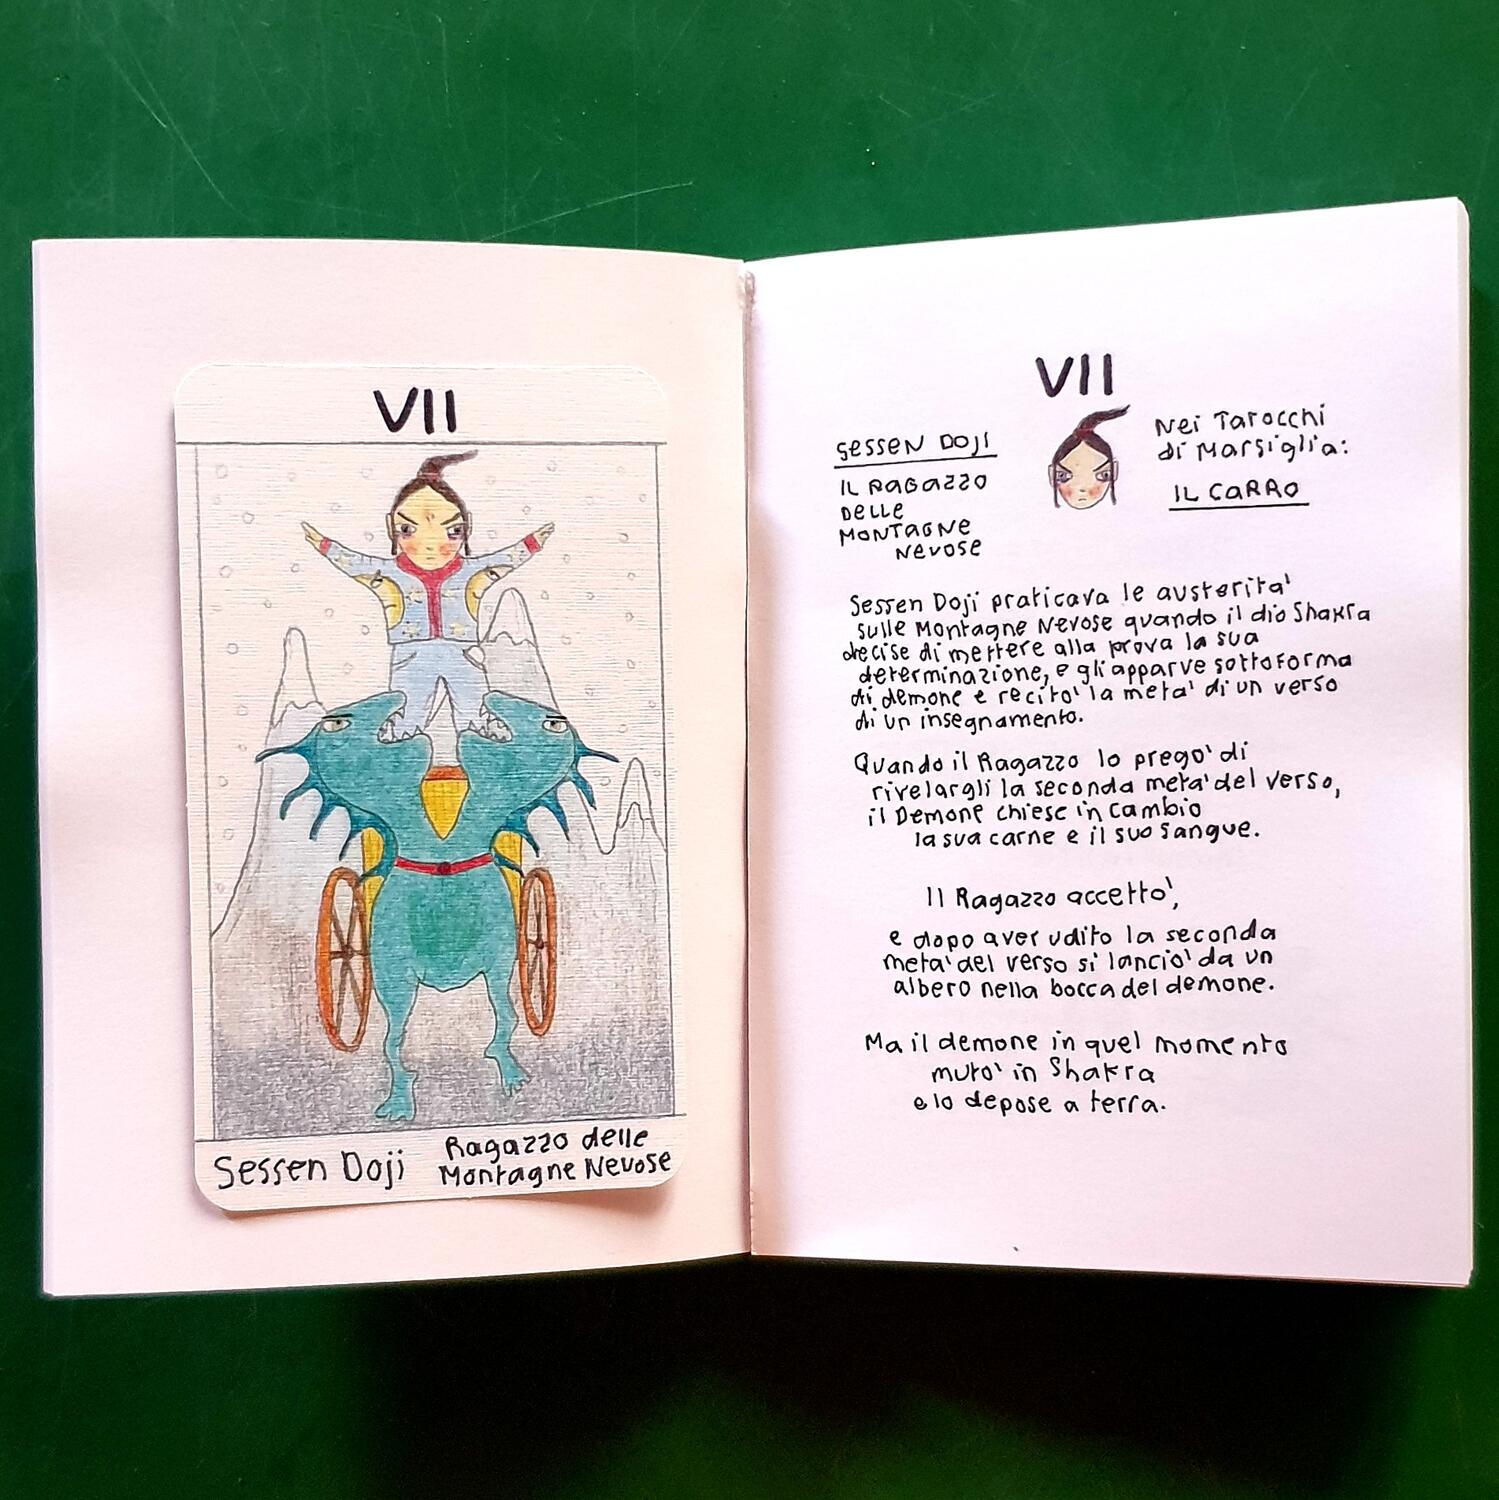 VII
Sessen Doji
Ragazzo delle
Montagne Nevose
VII
SESSEN DOJI
IL RAGAZZO
DELLE
MONTAGNE
NEVOSE
Nei Tarocchi
di Marsiglia:
IL CARRO
Sessen Doji praticava le austerita'
sulle Montagne Nevose quando il dio Shakra
decise di mettere alla prova la sua
determinazione, e gli apparve sottoforma
di demone e recito' la meta' di un verso
di un insegnamento.
Quando il Ragazzo lo prego' di
rivelargli la seconda meta' del verso,
il Demone chiese in cambio
la sua carne e il suo sangue.
Il Ragazzo accetto',
e dopo aver udito la seconda
meta' del verso si lancio' da un
albero nella bocca del demone.
Ma il demone in quel momento
muto' in Shakra
e lo depose a terra.